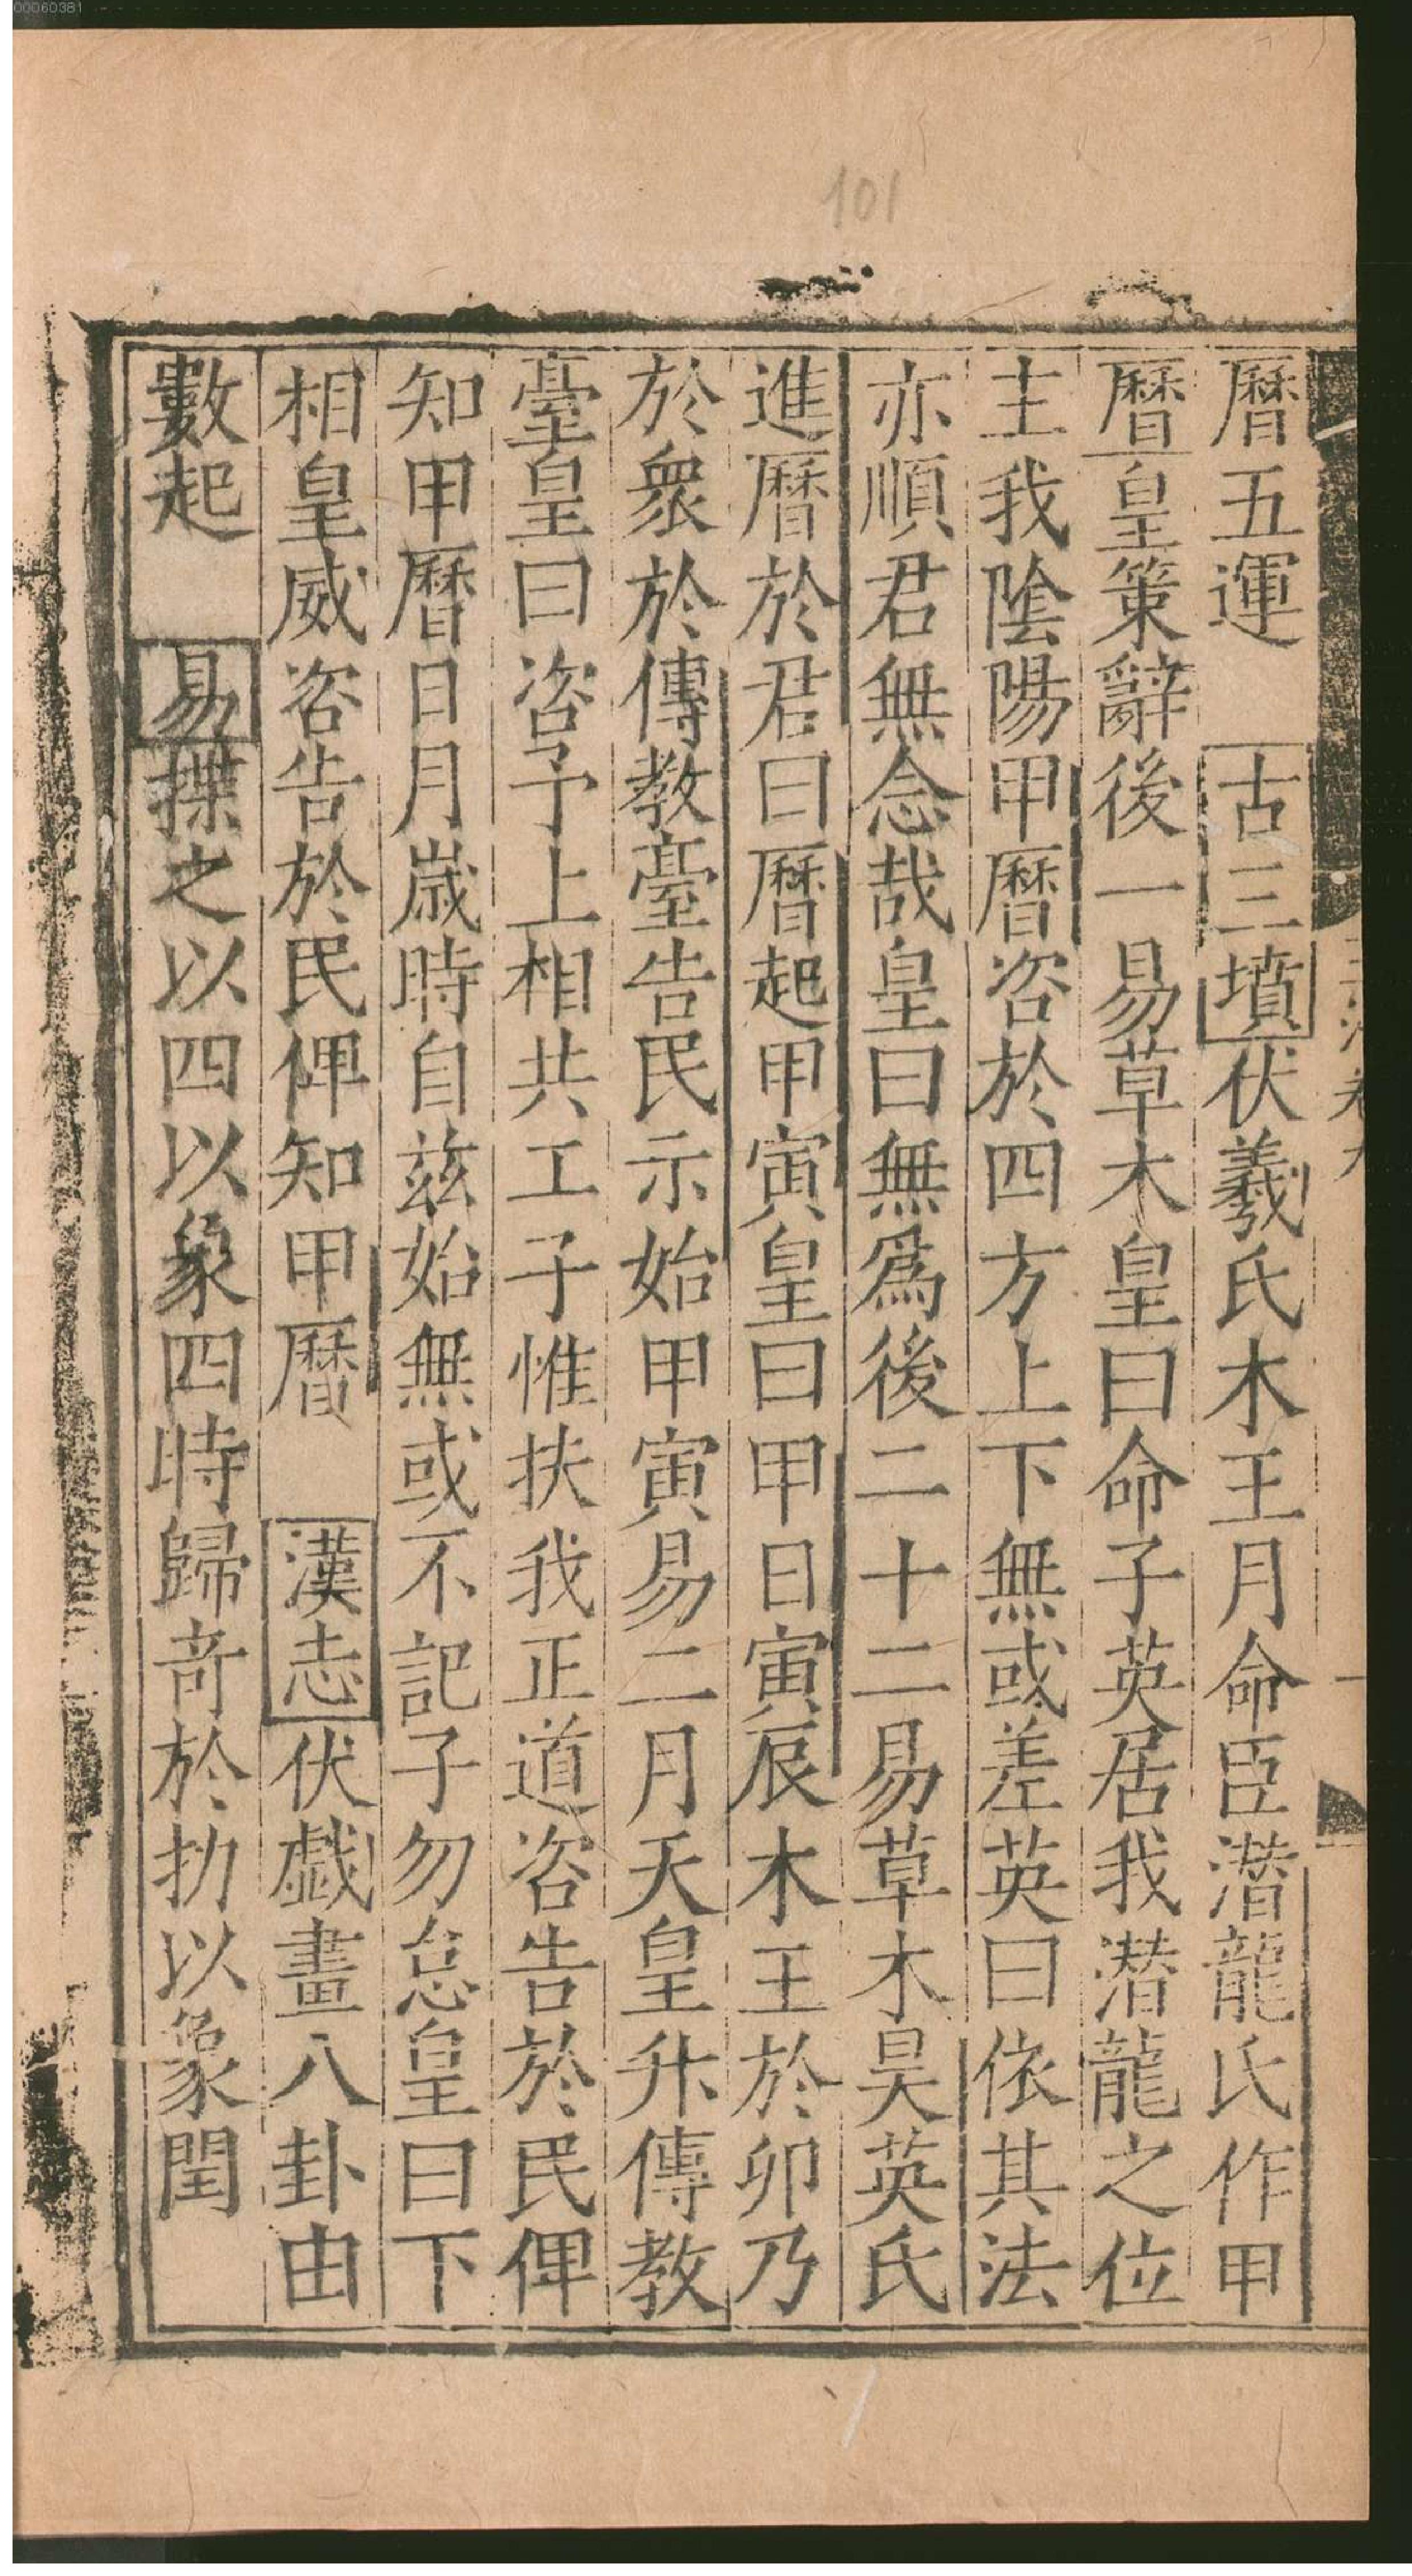 00060381
101
曆五運　古三墳伏羲氏木王月命臣潛龍氏作甲
曆皇策辭後一易草木皇曰命子英居我潛龍之位
主我陰陽甲曆咨於四方上下無或差英曰依其法
亦順君無念哉皇曰無爲後二十二易草木昊英氏
進曆於君曰曆起甲寅皇曰甲日寅辰木王於卯乃
於衆於傳教臺告民示始甲寅易二月天皇升傳教
臺皇曰咨予上相共工子惟扶我正道咨告於民俾
知甲曆日月嵗時自兹始無或不記子勿怠皇曰下
相皇威咨告於民俾知甲曆　漢志伏戲畫八卦由
數起　易揲之以四以象四時歸竒於扐以象閏